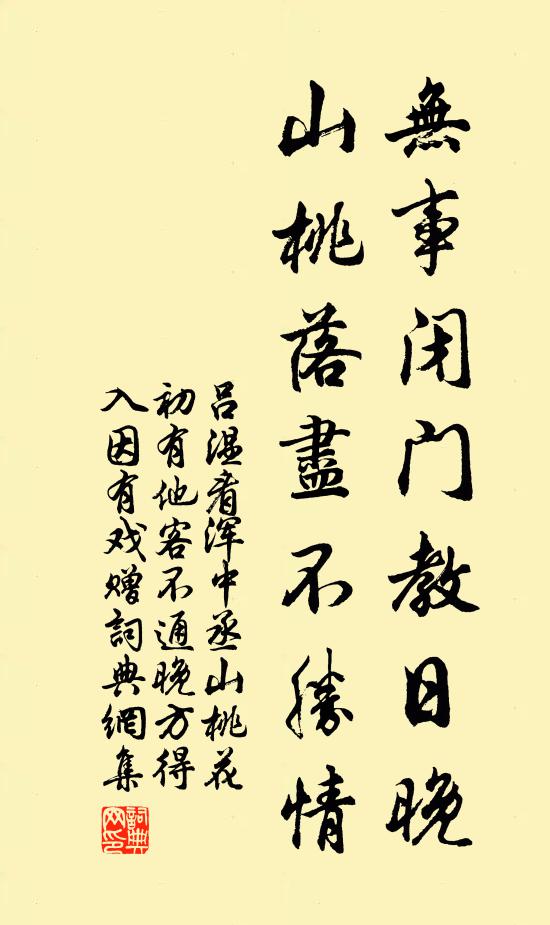 無事闭门教日晚
山桃落盡不勝情
吕温看浑中丞山桃花
初有他客不通晚方得
入因有戏赠詞典網集
詞典
网印